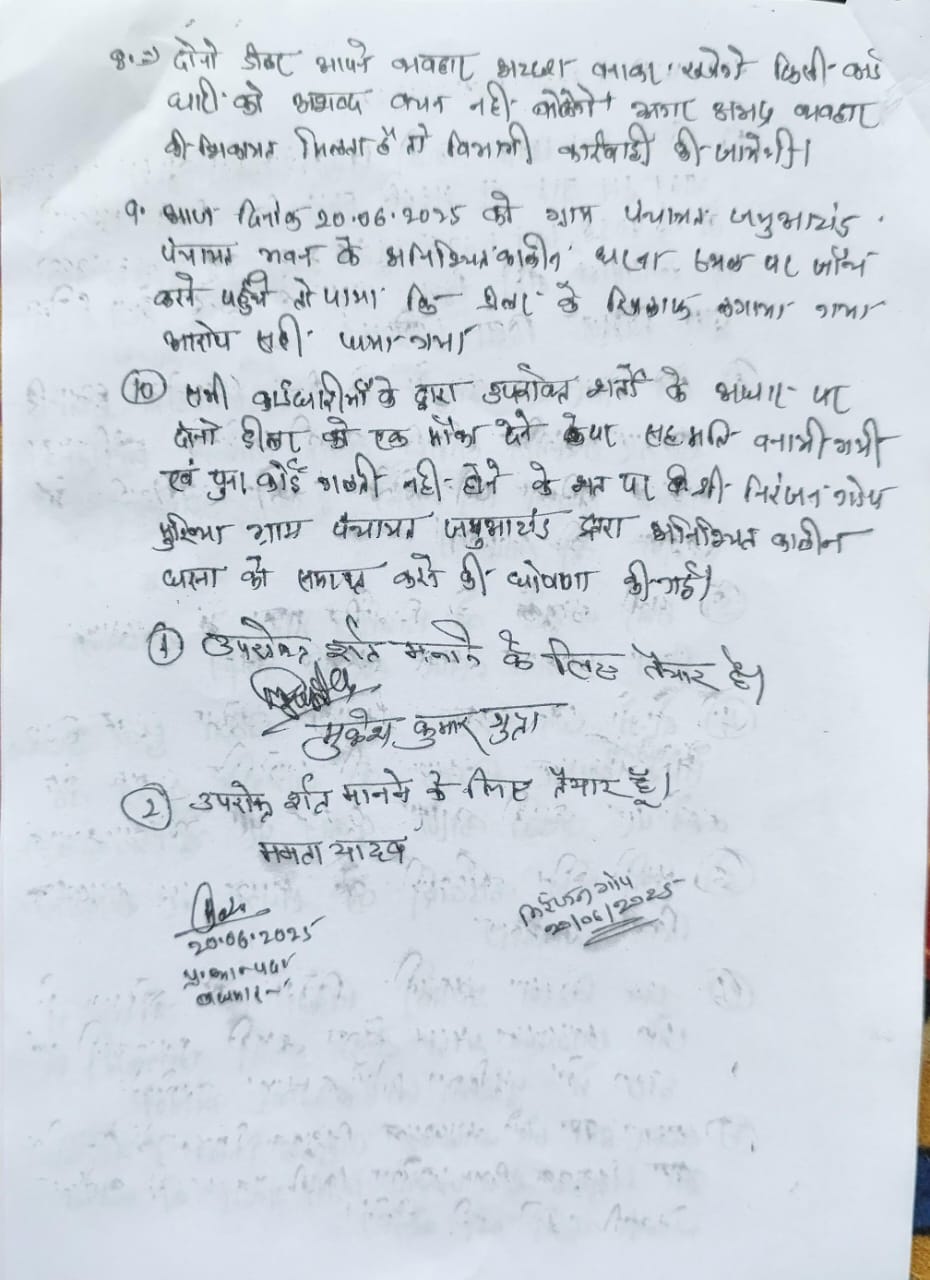 8. → दोनो डीलर अपने व्यवहार अच्छा बनाकर रखेंगे किसी कार्ड
धारी को अपशब्द वचन नही बोलेंगे। अगर अभद्र व्यवहार
की शिकायत मिलता है तो विभागी कार्रवाई की जायेगी।
9. आज दिनांक 20.06.2025 को ग्राम पंचायत जमुआखंड
पंचायत भवन के अनिश्चित कालीन धरना स्थल पर जाँच
करने पहुँचे तो पाया कि डीलर के खिलाफ लगाया गया
आरोप सही पाया गया
10 सभी कार्डधारीयों के द्वारा उपरोक्त शर्तों के आधार पर
दोनो डीलर को एक मौका देने पर सहमति बनायी गयी
एवं पुनः कोई गलती नही होने के शर्त पर श्री निरंजन गोप
मुखिया ग्राम पंचायत जमुआखंड द्वारा अनिश्चित कालीन
धरना को समाप्त करने की घोषणा की गई।
1 उपरोक्त र्शत मनाने के लिए तैयार है।
मुकेश कुमार गुप्ता
2 उपरोक्त र्शत मानने के लिए तैयार हूँ।
ममता यादव
निरंजन गोप
20/06/2025
20.06.2025